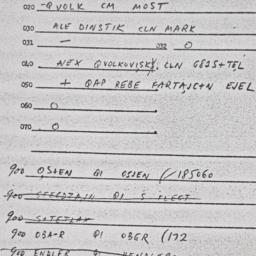 020 -QVOLK CM MOST
030 ALE DINSTIK CLN MARK
031 - 032 0
040 NEX QVOLKOVISKY, CLN GEJS+TEL
050 + QAP REBE FARTAJC+N EJEL
060 0
070 0
900 OS+EN QI OSJEN (/185060
900
900
900 OBA-R QI OBER (172
900 ENDLER QI HENDLER